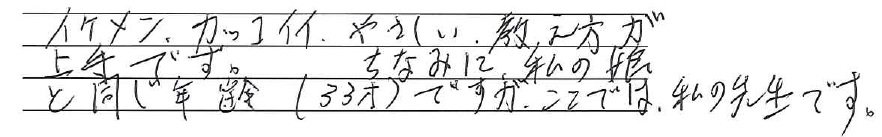 イケメン、カッコイイ、やさしい、教え方が
上手です。 ちなみに、私の娘
と同じ年齢(33才)ですが、ここでは、私の先生です。